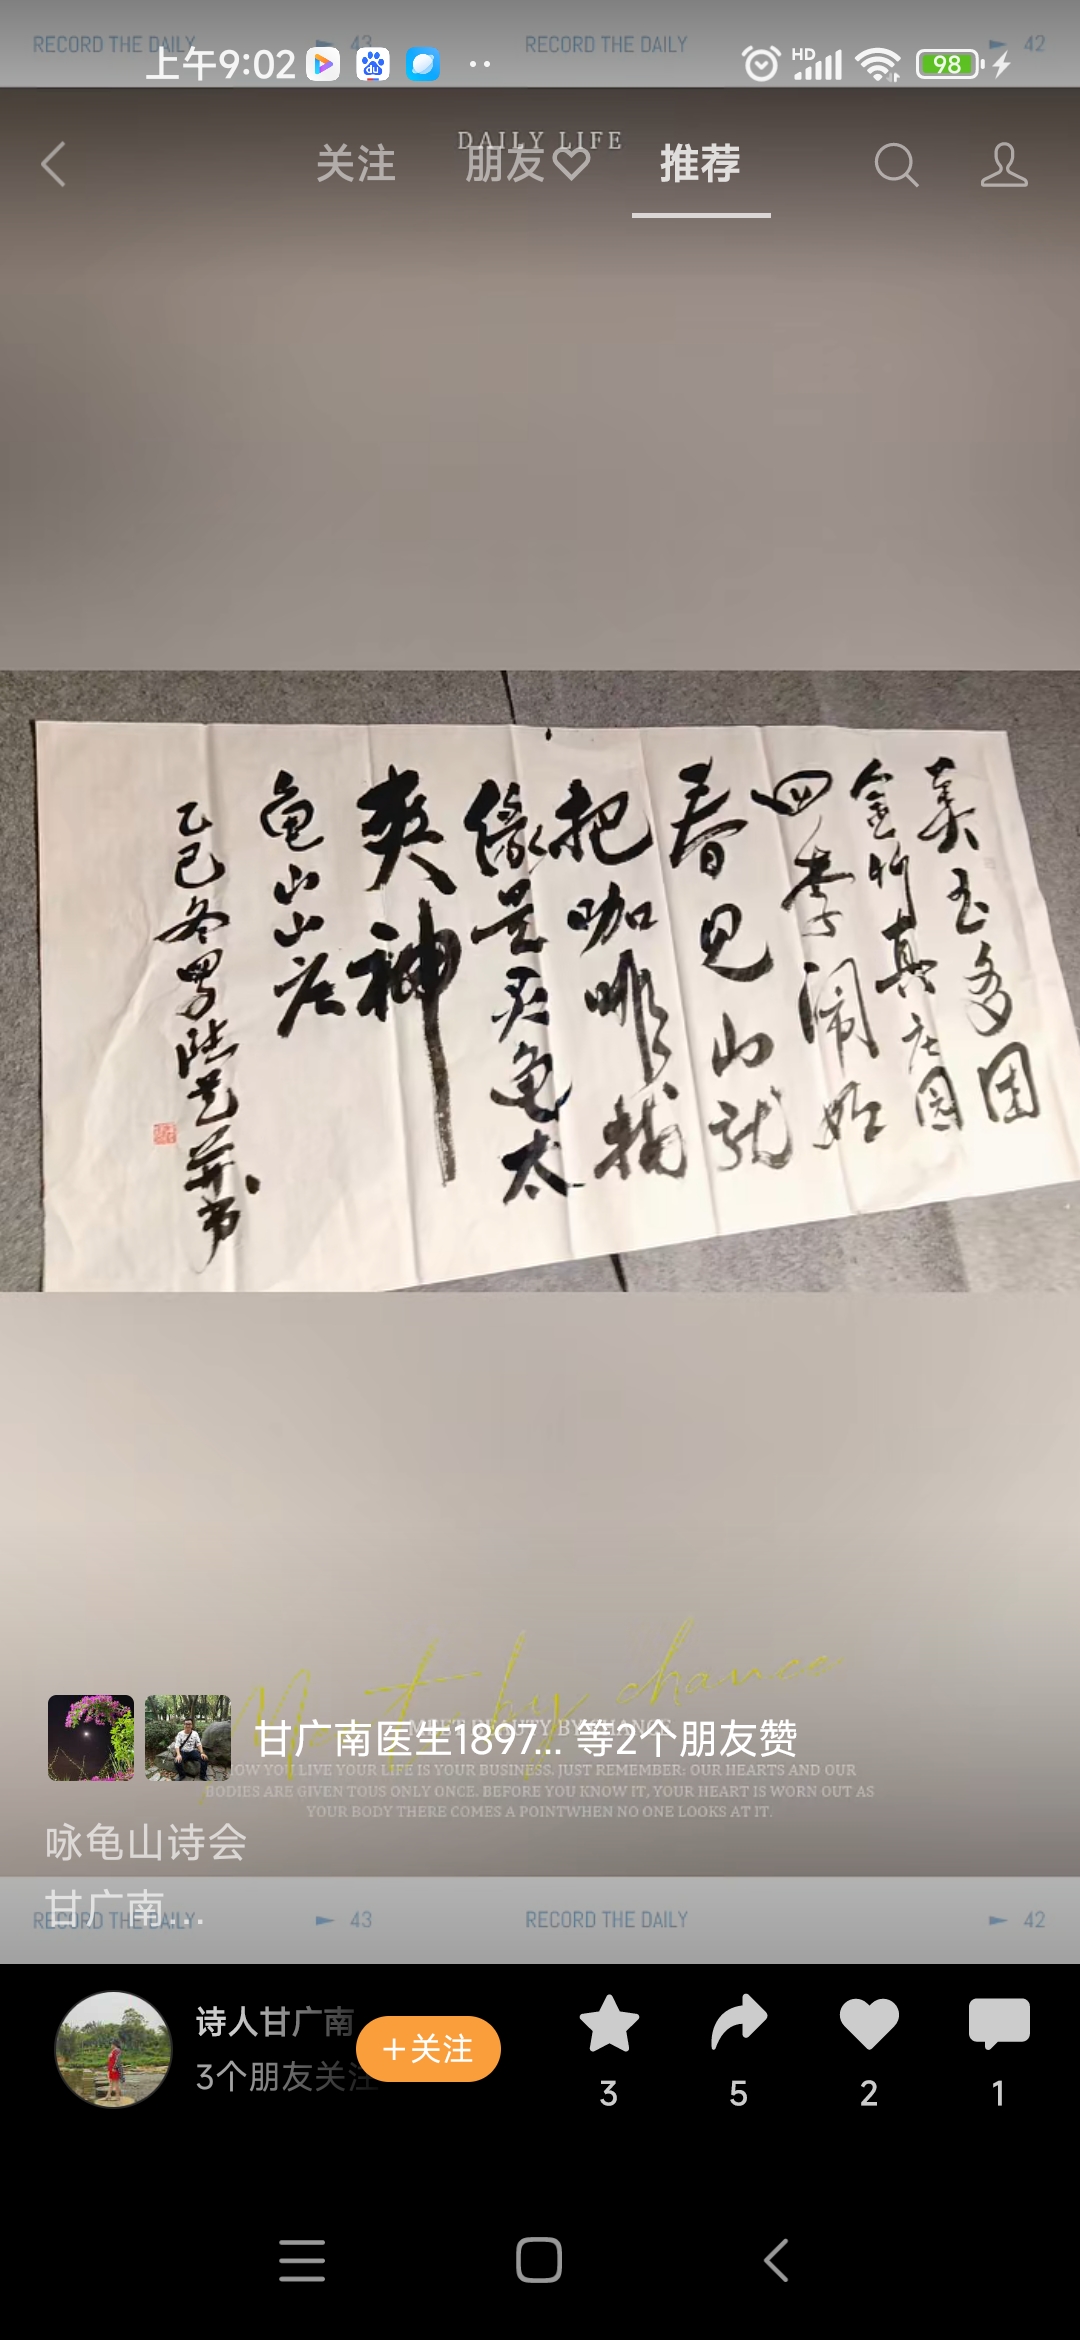 RECORD THE DAILY
43
RECORD THE DAILY
42
上午9:02
HD
98
DAILY LIFE
关注
朋友
推荐
美玉多团
金竹真庄园
四季闹如
春见山就
把咖啡
缘是天龟太
爽神
龟山山庄
乙巳冬粤陆艺并书
Meet by chance
MEET BEAUTY BY CHANCE
甘广南医生1897... 等2个朋友赞
HOW YOU LIVE YOUR LIFE IS YOUR BUSINESS. JUST REMEMBER: OUR HEARTS AND OUR
BODIES ARE GIVEN TOUS ONLY ONCE. BEFORE YOU KNOW IT, YOUR HEART IS WORN OUT AS
YOUR BODY THERE COMES A POINTWHEN NO ONE LOOKS AT IT.
咏龟山诗会
甘广南...
RECORD THE DAILY
43
RECORD THE DAILY
42
诗人甘广南
3个朋友关注
+关注
3
5
2
1